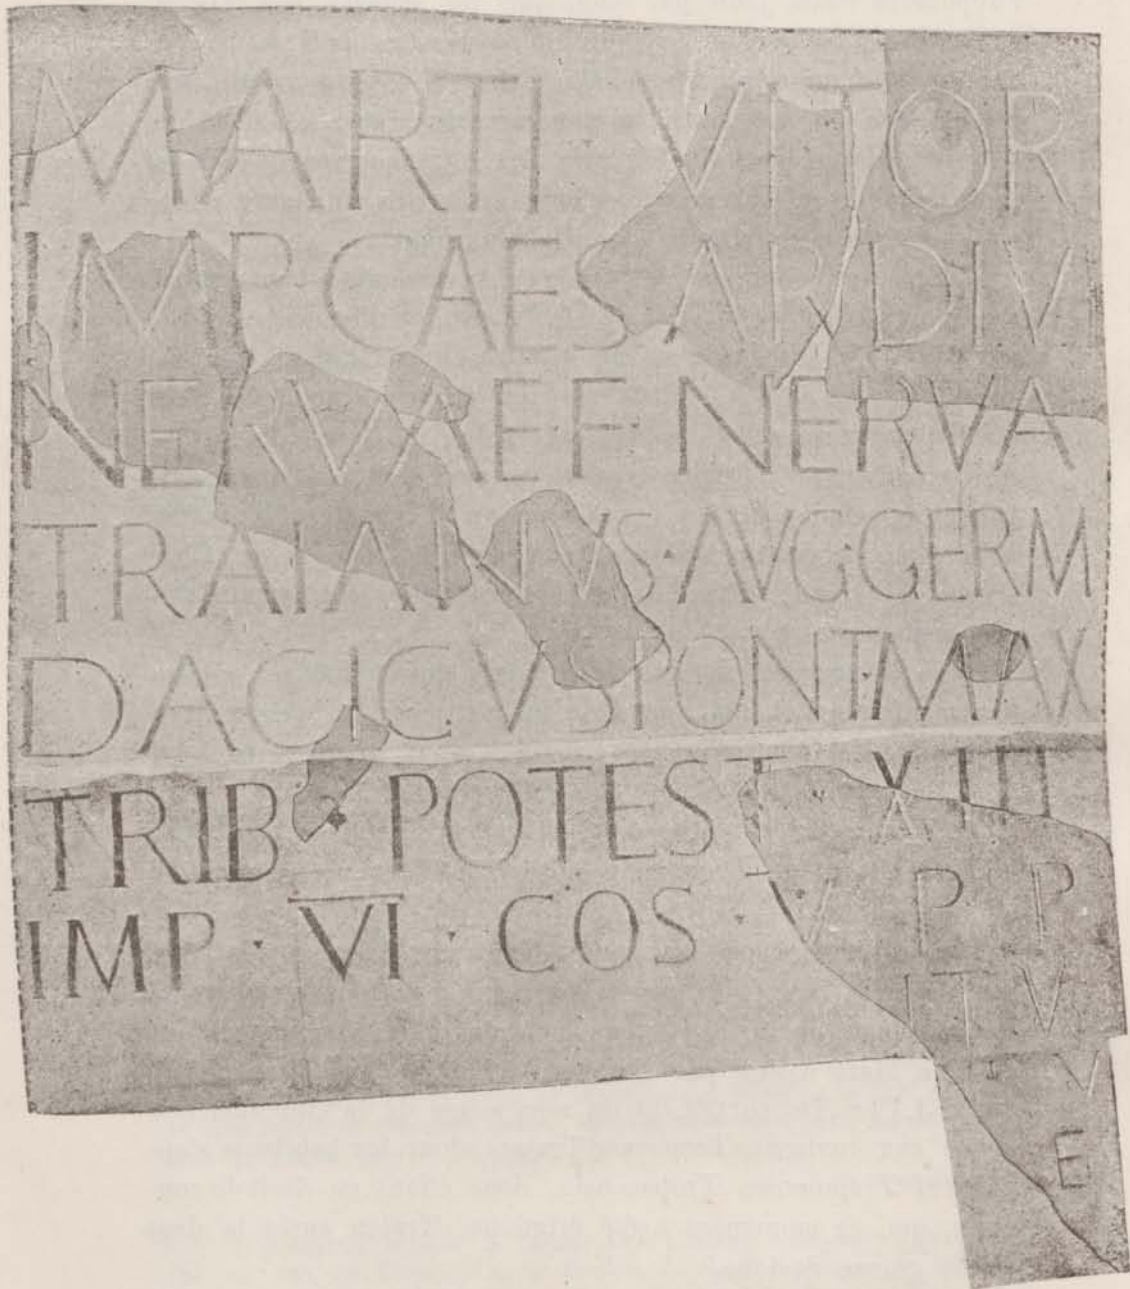 MARTI · VITOR
IMP CAESAR DIVI
NERVAE F · NERVA
TRAIANVS · AVG · GERM
DACICVS PONT · MAX
TRIB · POTEST · XIII
IMP · VI · COS · V P · P
IT V
V
E